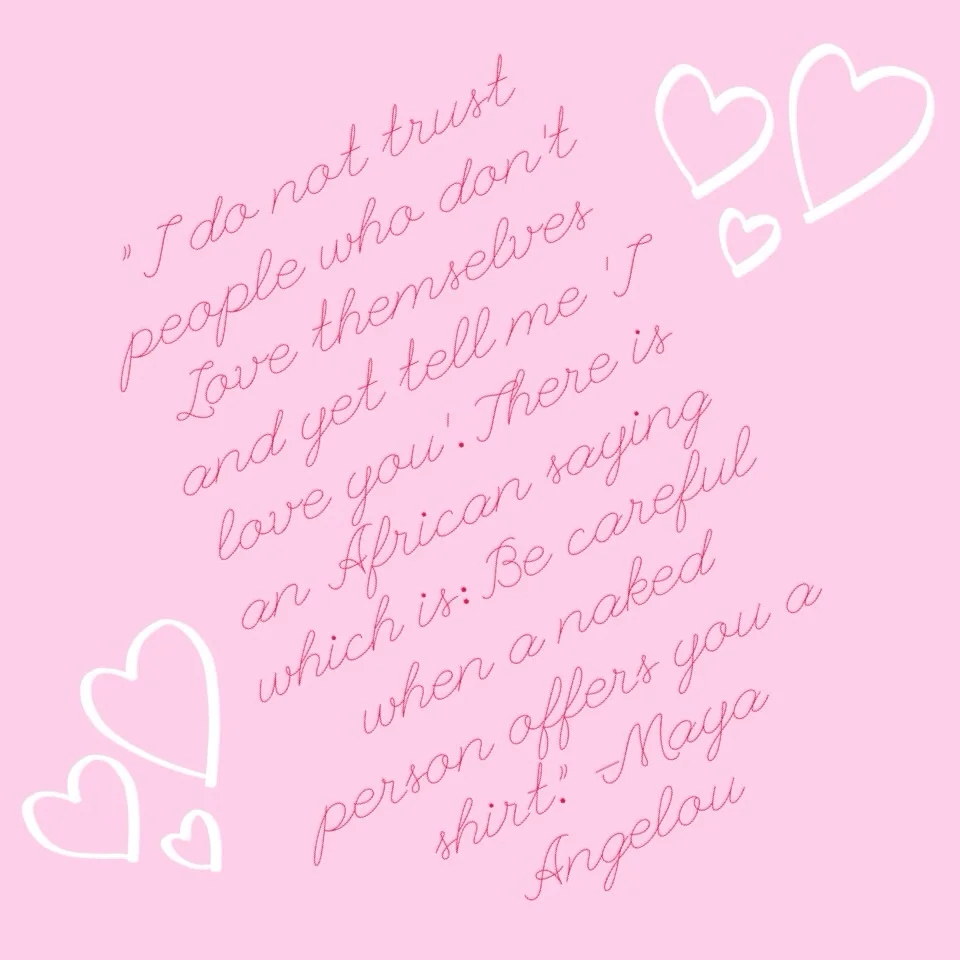 "I do not trust
people who don't
Love themselves
and yet tell me 'I
love you'. There is
an African saying
which is: Be careful
when a naked
person offers you a
shirt." -Maya
Angelou